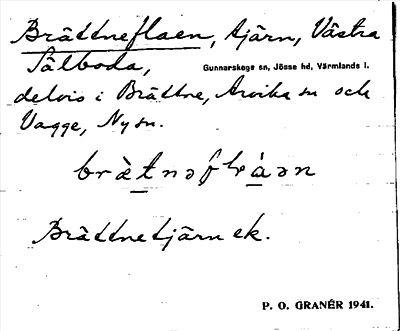 Brättneflaen, tjärn, Västra
Sälboda, Gunnarskogs sn, Jösse hd, Värmlands l.
delvis i Brättne, Arvika sn och
Vagge, Ny sn.
Brättnetjärn ek.
P. O. GRANÉR 1941.